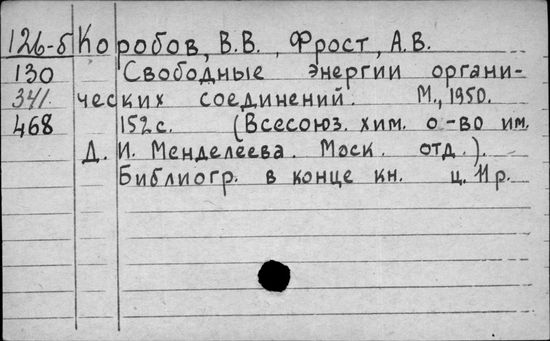 126-б Коробов, В.В., Фрост, А.В.
130 Свободные энергии органи-
341. ческих соединений. М., 1950.
468 152 с. (Всесоюз. хим. о-во им.
Д. И. Менделеева. Моск. отд.).
Библиогр. в конце кн. ц. 11 р.